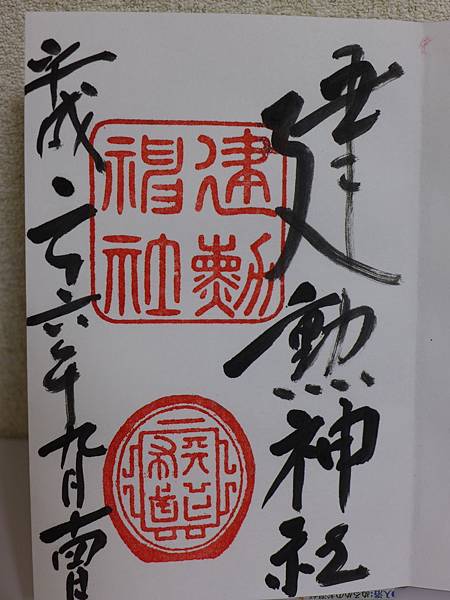 建勲神社
建勲
神社
平成二十六年九月